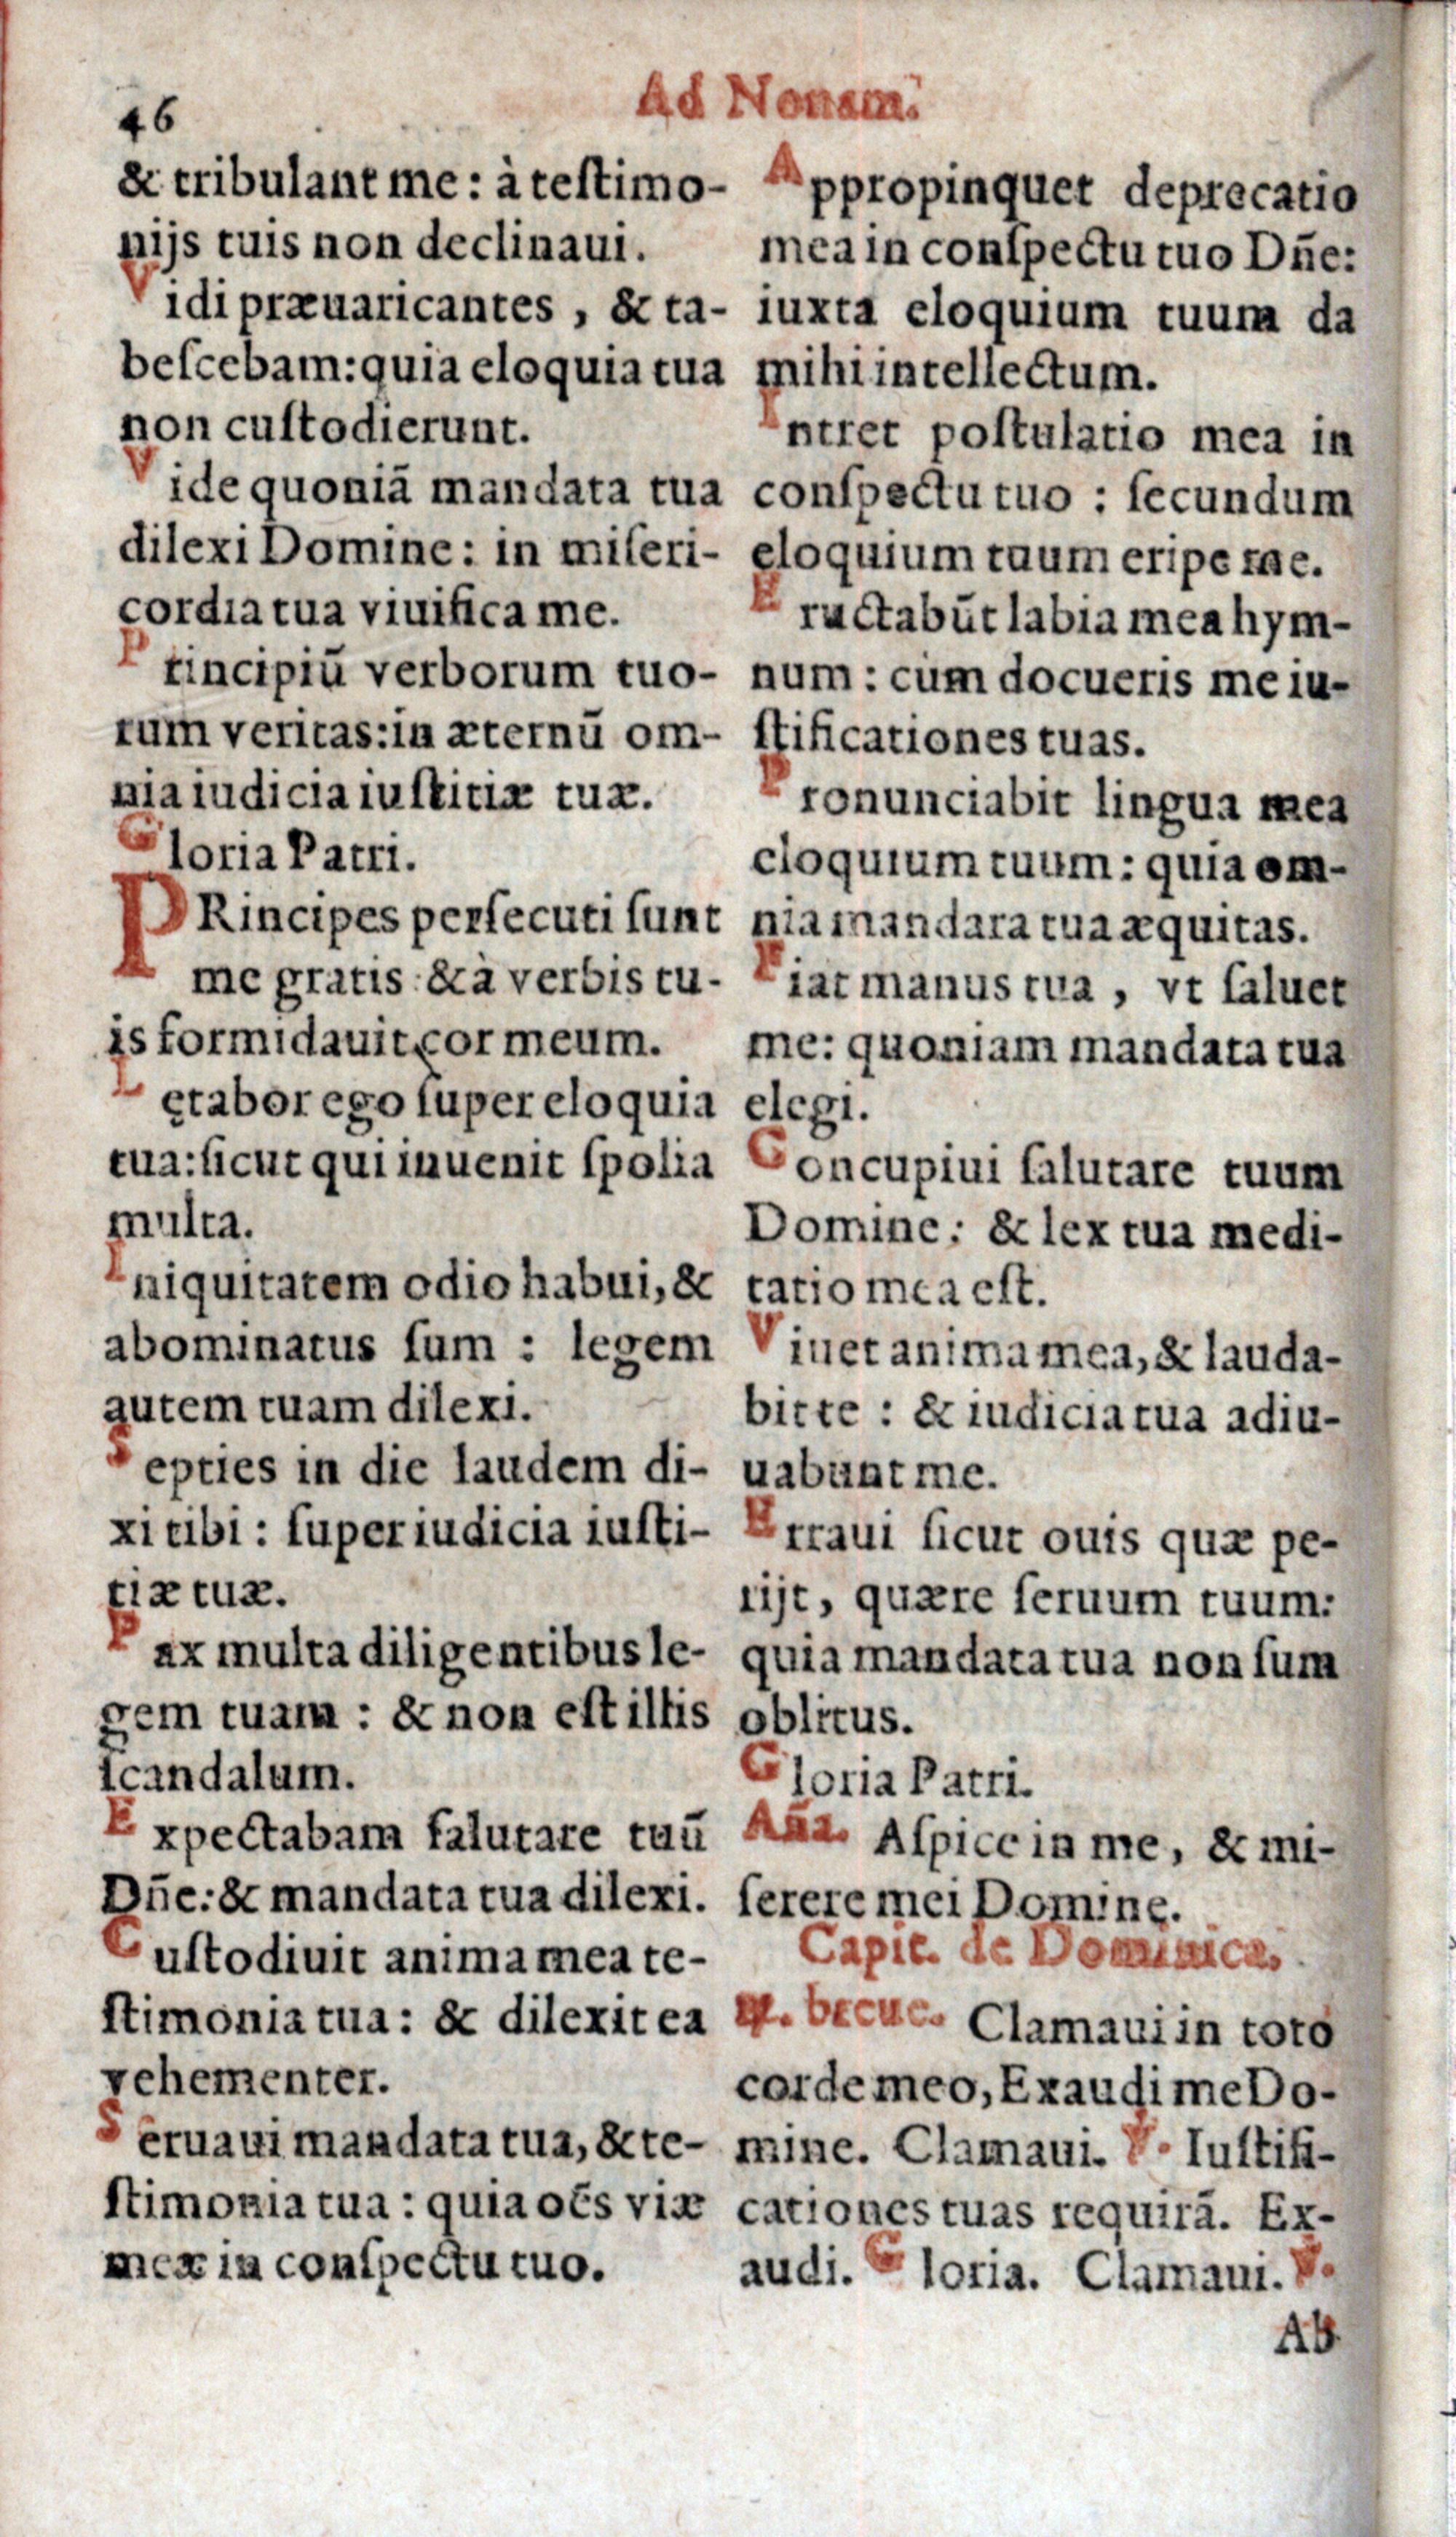 46
Ad Nonam.
& tribulant me: à teſtimo-
nijs tuis non declinaui.
Vidi præuaricantes, & ta-
beſcebam: quia eloquia tua
non cuſtodierunt.
Vide quoniã mandata tua
dilexi Domine: in miſeri-
cordia tua viuifica me.
Principiũ verborum tuo-
rum veritas: in æternũ om-
nia iudicia iuſtitiæ tuæ.
Gloria Patri.
PRincipes perſecuti ſunt
me gratis: & à verbis tu-
is formidauit cor meum.
Lętabor ego ſuper eloquia
tua: ſicut qui inuenit ſpolia
multa.
Iniquitatem odio habui, &
abominatus ſum: legem
autem tuam dilexi.
Septies in die laudem di-
xi tibi: ſuper iudicia iuſti-
tiæ tuæ.
Pax multa diligentibus le-
gem tuam: & non eſt illis
ſcandalum.
Expectabam ſalutare tuũ
Dñe: & mandata tua dilexi.
Cuſtodiuit anima mea te-
ſtimonia tua: & dilexit ea
vehementer.
Seruaui mandata tua, & te-
ſtimonia tua: quia oẽs viæ
meæ in conſpectu tuo.
Appropinquet deprecatio
mea in conſpectu tuo Dñe:
iuxta eloquium tuum da
mihi intellectum.
Intret poſtulatio mea in
conſpectu tuo: ſecundum
eloquium tuum eripe me.
Eructabũt labia mea hym-
num: cùm docueris me iu-
ſtificationes tuas.
Pronunciabit lingua mea
eloquium tuum: quia om-
nia mandara tua æquitas.
Fiat manus tua, vt ſaluet
me: quoniam mandata tua
elegi.
Concupiui ſalutare tuum
Domine: & lex tua medi-
tatio mea eſt.
Viuet anima mea, & lauda-
bit te: & iudicia tua adiu-
uabunt me.
Erraui ſicut ouis quæ pe-
rijt, quære ſeruum tuum:
quia mandata tua non ſum
oblitus.
Gloria Patri.
Aña. Aſpice in me, & mi-
ſerere mei Domine.
Capit. de Dominica.
℟. breue. Clamaui in toto
corde meo, Exaudi me Do-
mine. Clamaui. ℣. Iuſtifi-
cationes tuas requirã. Ex-
audi. Gloria. Clamaui. ℣.
Ab